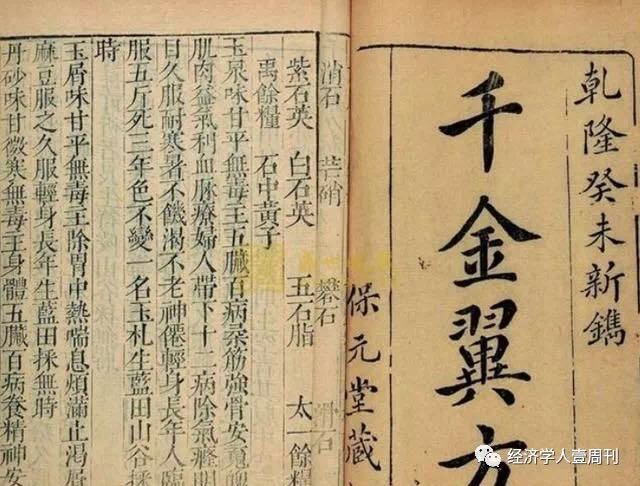 乾隆癸未新鐫
千金翼方
保元堂藏
消石 芒硝 礬石 滑石
紫石英 白石英 五石脂 太一餘糧
禹餘糧 石中黃子
玉泉味甘平無毒主五臟百病柔筋強骨安䰟
肌肉益氣利血脉療婦人帶下十二病除氣癃明
目久服耐寒暑不饑渴不老神僊輕身長年人臨
服五斤死三年色不變一名玉札生藍田山谷採
時
玉屑味甘平無毒主除胃中熱喘息煩滿止渴屑
麻豆服之久服輕身長年生藍田採無時
丹砂味甘微寒無毒主身體五臟百病養精神安
经济学人壹周刊